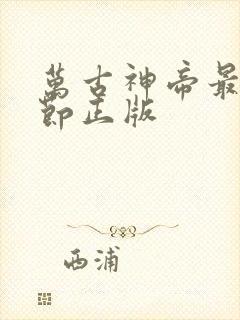 萬古神帝最
節正版
西浦